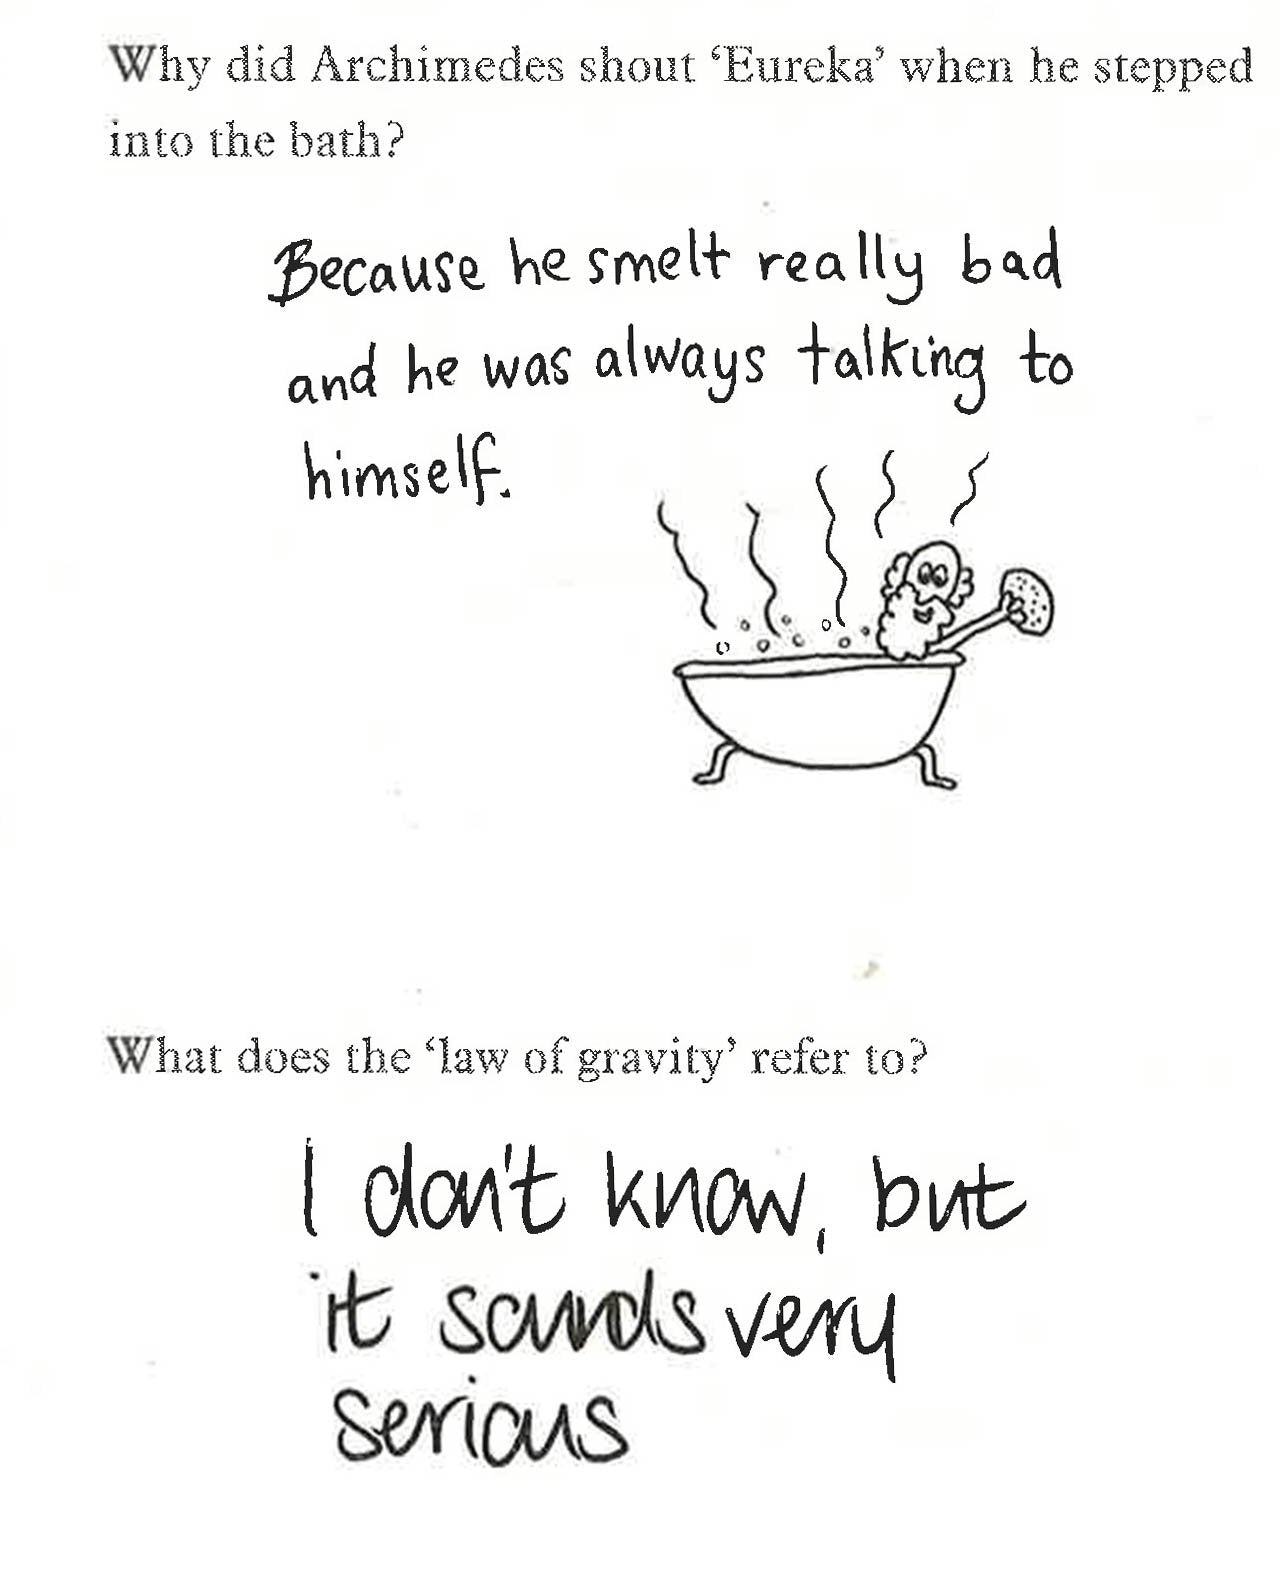 Why did Archimedes shout ‘Eureka’ when he stepped
into the bath?
Because he smelt really bad
and he was always talking to
himself.
What does the ‘law of gravity’ refer to?
I don't know, but
it sounds very
serious